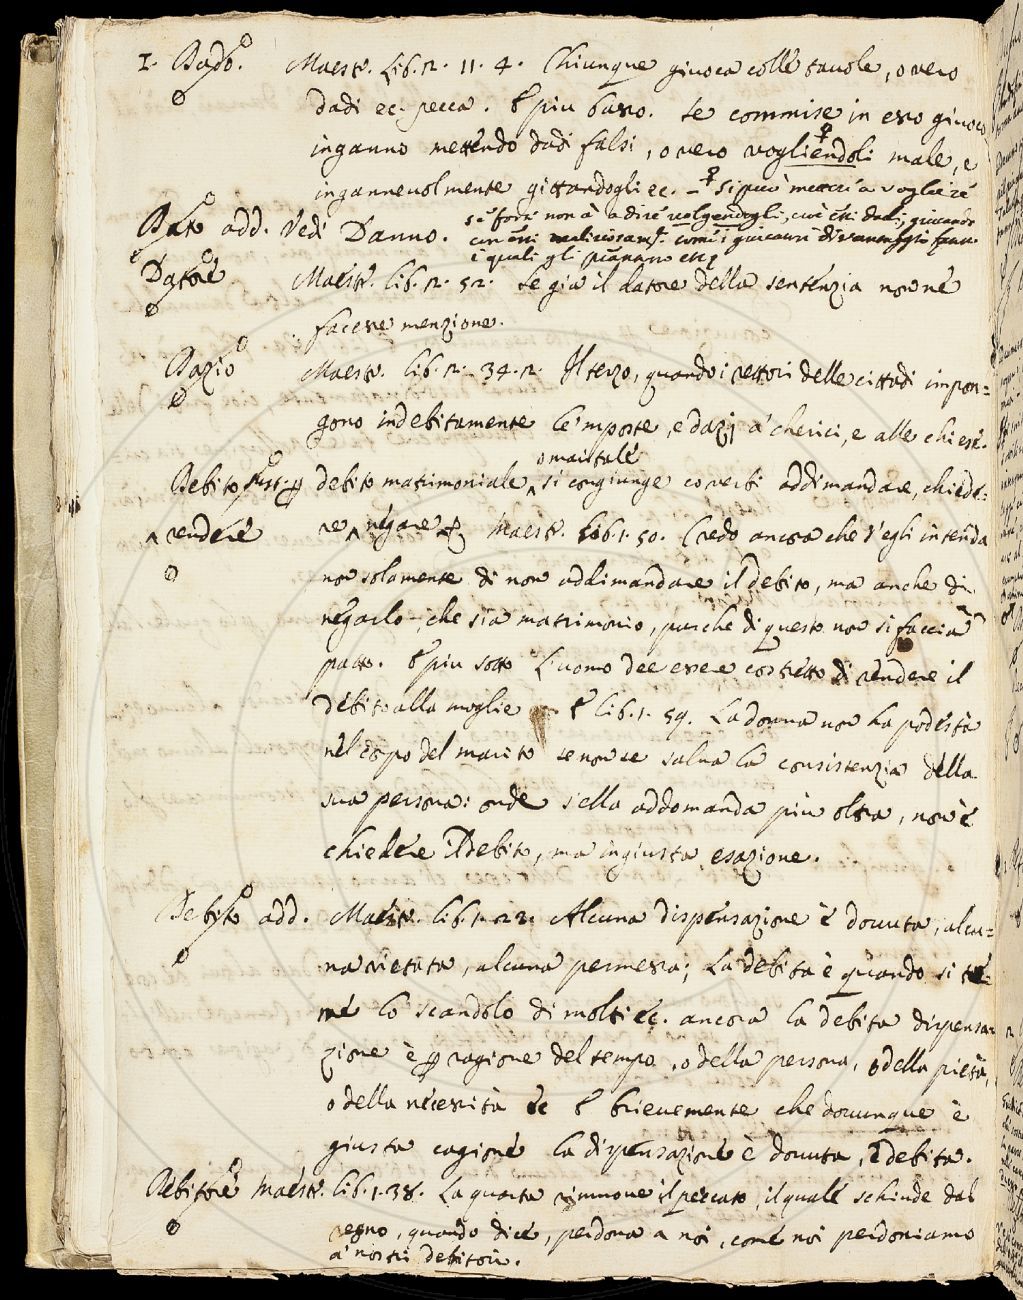 I. Dado. Maestr. Lib. 2. 11. 4. Chiunque giuoca colle tavole, o vero
dadi ec. pecca. E più basso. Se commise in esso giuoco
inganno mettendo dadi falsi, o vero vogliendoli male, e
ingannevolmente gittandogli ec. – si può metter a vogliere
se forse non à a dire volgendogli, cioè essi dadi, giucando
Dato add. Vedi Danno. con essi maliziosam. come i giucatori di vantaggio fanno
i quali gli
Datore Maestr. lib. 2. 52. Se già il datore della sentenzia non ne
facesse menzione.
Dazio Maestr. lib. 2. 34. 2. Il terzo, quando i rettori delle cittadi impon=
gono indebitamente le 'mposte, e dazj a' cherici, e alle chiese.
o maritale
Debito sust. debito matrimoniale si congiunge co verbi addimandare, chiede=
rendere re negare Maestr. lib. 1. 50. Credo ancora che s'egli intenda
non solamente di non addimandare il debito, ma anche di
negarlo, che sia matrimonio, purche di questo non si faccia
patto. E più sotto L'uomo dee essere costretto di rendere il
debito alla moglie E lib. 1. 59. La donna non ha podestà
nel corpo del marito se non se salva la consistenzia della
sua persona: onde s'ella addomanda più oltra, non è
chiedere il debito, ma ingiusta esazione.
Debito add. Maestr. lib. 1. 22. Alcuna dispensazione è dovuta, alcu=
na vietata, alcuna permessa; La debita è quando si te=
me lo scandolo di molti ec. ancora la debita dispensa=
zione è ragione del tempo, o della persona, o della pietà,
o della necessità ec E brievemente che dovunque è
giusta cagione la dispensazione è dovuta, e debita.
Debitore Maestr. lib. 1. 38. La quarta rimmone il peccato, il quale schiude dal
regno, quando dice, perdona a noi, come noi perdoniamo
a' nostri debitori.